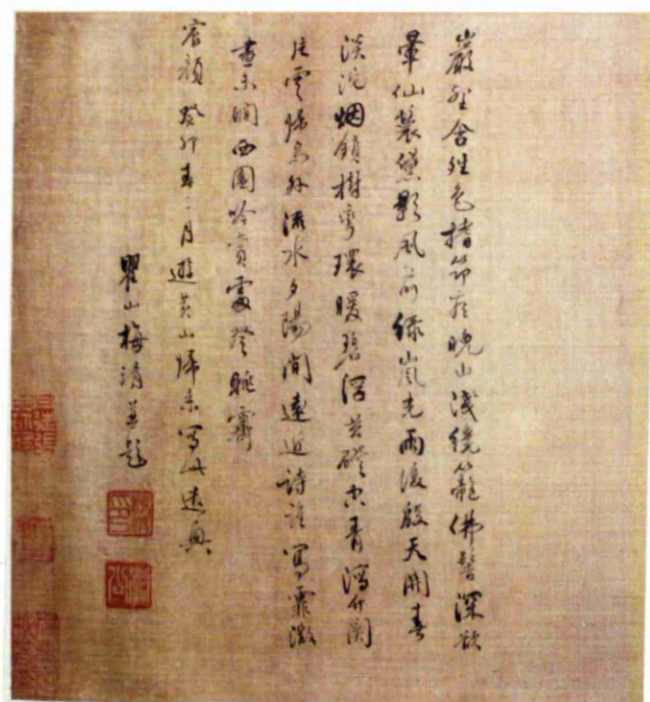 巖壑含色搘笻晚山淺繞籠佛髻深欲
暈仙鬟黛影風前綠嵐光雨後殷天開春
淡沱烟鎖樹彎環暖碧浮磴空青瀉竹關
片雲歸鳥外流水夕陽間遠近詩誰寫霏微
畫未閒西園吟賞處登眺霽
容顏 癸卯春二月遊黃山歸來寫此遣興
瞿山梅清並題